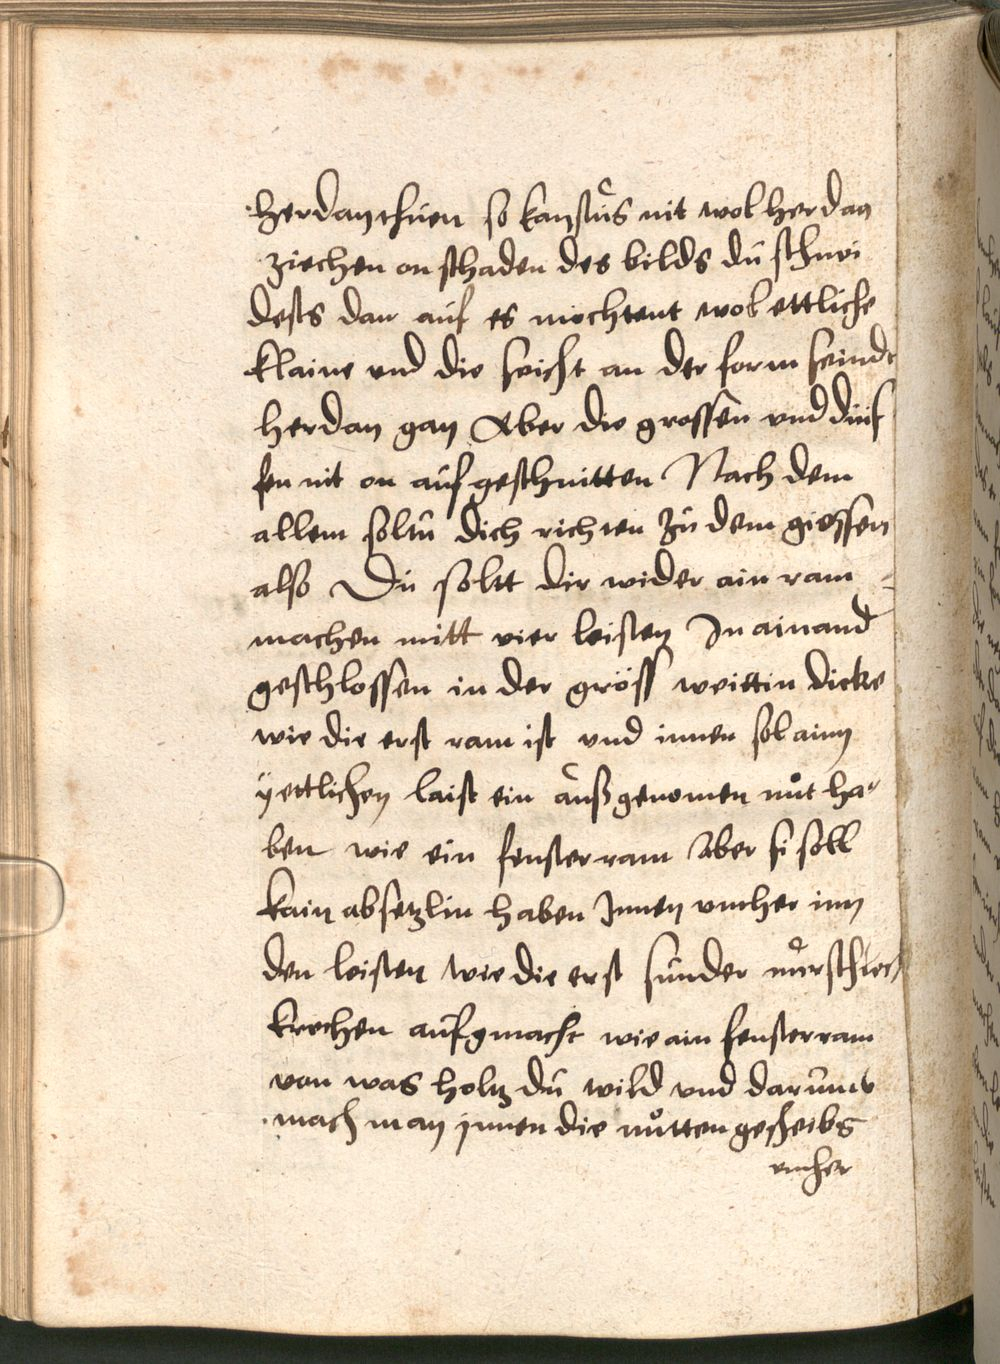 herdan thuen so kanstus nit wol herdan
ziechen on schaden des bilds du schnei
dests dan auf es mochtent wol ettliche
klaine und die seicht an der form seindt
herdan gan Aber die grossen und düif
fen nit on aufgeschnitten Nach dem
allem soltu dich richten zu dem giessen
also Du soltt dir wider ain ram
machen mitt vier leisten In ainand
geschlossen in der gröss weittin dicke
wie die erst ram ist und innen sol ainn
yettlichen laist ein außgenomen nůt ha
ben wie ein fensterram Aber si soll
kain absetzlin haben Innen umher inn
den leisten wie die erst sunder nůr schlec
krechen aufgmacht wie ain fensterram
von was holtz du wild und darumb
mach man jnnen die nůtten gescheibs
umher